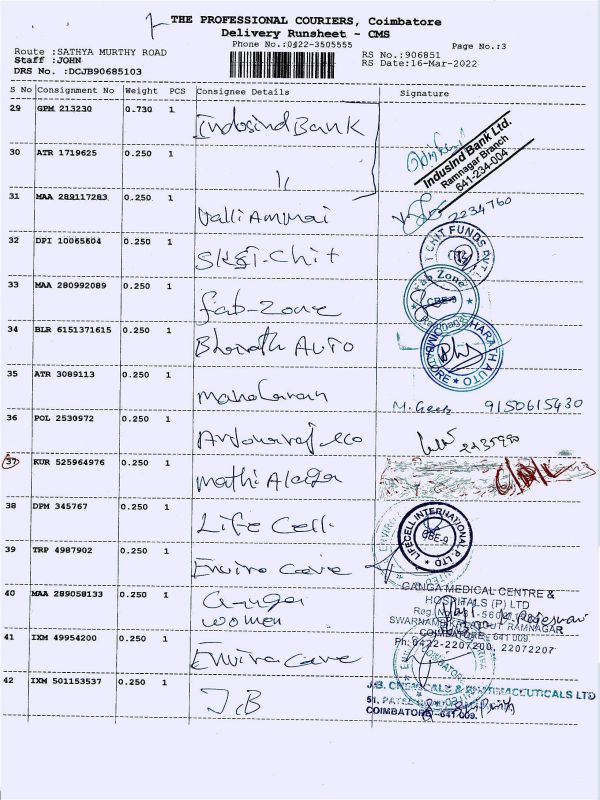 THE PROFESSIONAL COURIERS, Coimbatore
Delivery Runsheet - CMS
Phone No.:0422-3505555
Page No.:3
Route :SATHYA MURTHY ROAD
Staff :JOHN
DRS No. :DCJB90685103
RS No.:906851
RS Date:16-Mar-2022
S No Consignment No Weight PCS Consignee Details Signature
29 GPM 213230 0.730 1 Indusind Bank
IndusInd Bank Ltd.
Ramnagar Branch
641-234-004
30 ATR 1719625 0.250 1 "
31 MAA 289117283 0.250 1 Valli Ammai 2234760
32 DPI 10065604 0.250 1 Skgi-Chit
CHIT FUNDS PVT
33 MAA 280992089 0.250 1 fab-zone
Fab Zone
CBE-9
34 BLR 6151371615 0.250 1 Bharath AUTO
BHARATH AUTO
COIMBATORE
35 ATR 3089113 0.250 1 manoharan M. Geetha 9150615430
36 POL 2530972 0.250 1
37 KUR 525964976 0.250 1 Mathi Alaga
38 DPM 345767 0.250 1 Life Cell
LIFECELL INTERNATIONAL P. LTD
CBE-9
39 TRP 4987902 0.250 1 Enviro Care
40 MAA 289058133 0.250 1 Ganga
women
GANGA MEDICAL CENTRE &
HOSPITALS (P) LTD
SWARNAMBIKA LAYOUT RAMNAGAR
COIMBATORE - 641 009.
Ph: 0422-2207200, 22072207
41 IXM 49954200 0.250 1 Enviro Care
COIMBATORE
42 IXM 501153537 0.250 1 J.B
J.B. CHEMICALS & PHARMACEUTICALS LTD
COIMBATORE - 641 009.